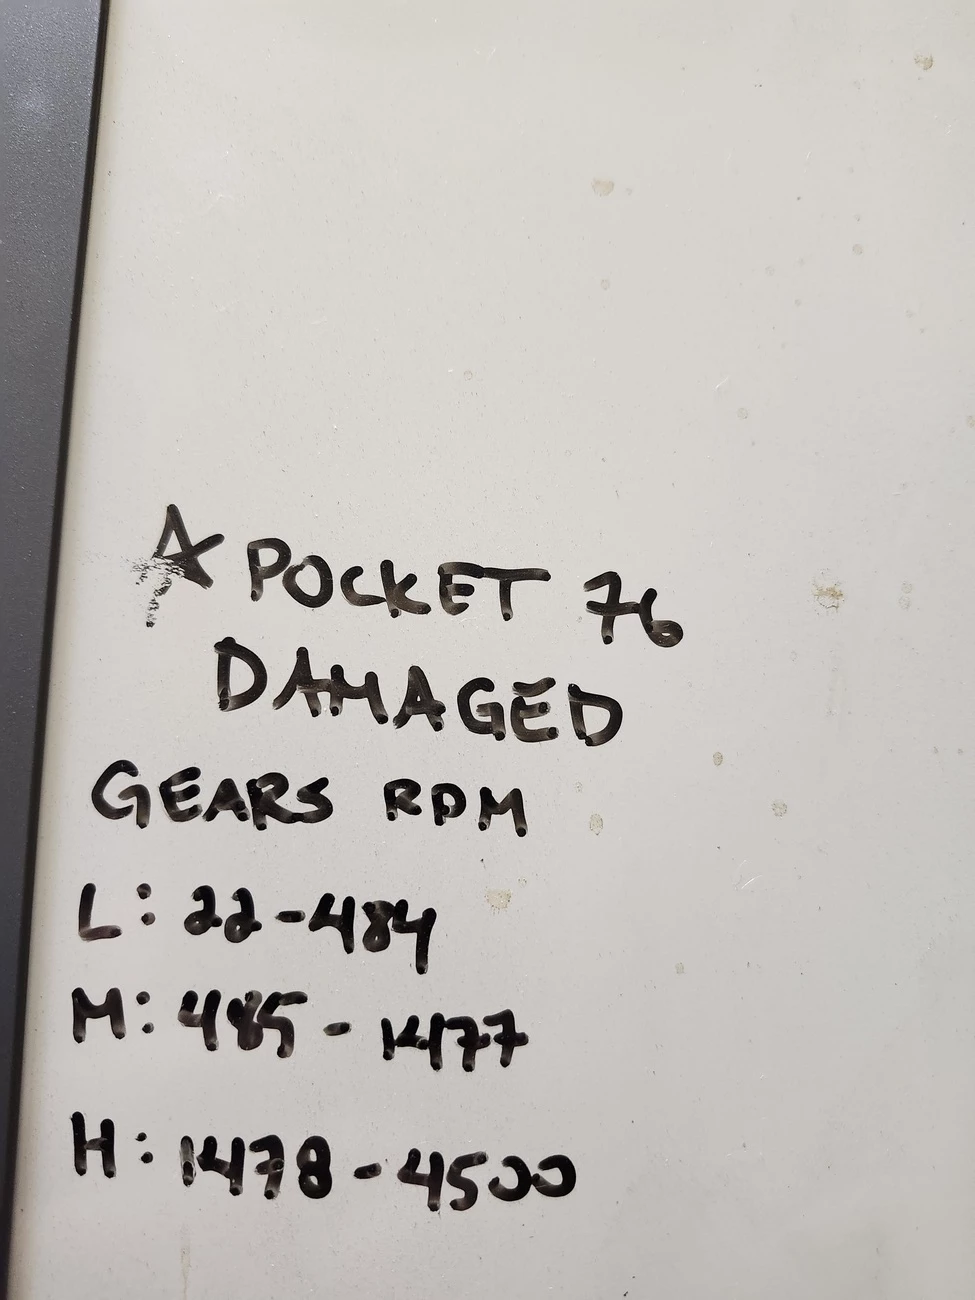 ☆ POCKET 76
DAMAGED
GEARS RPM
L: 22-484
M: 485 - 1477
H: 1478 - 4500